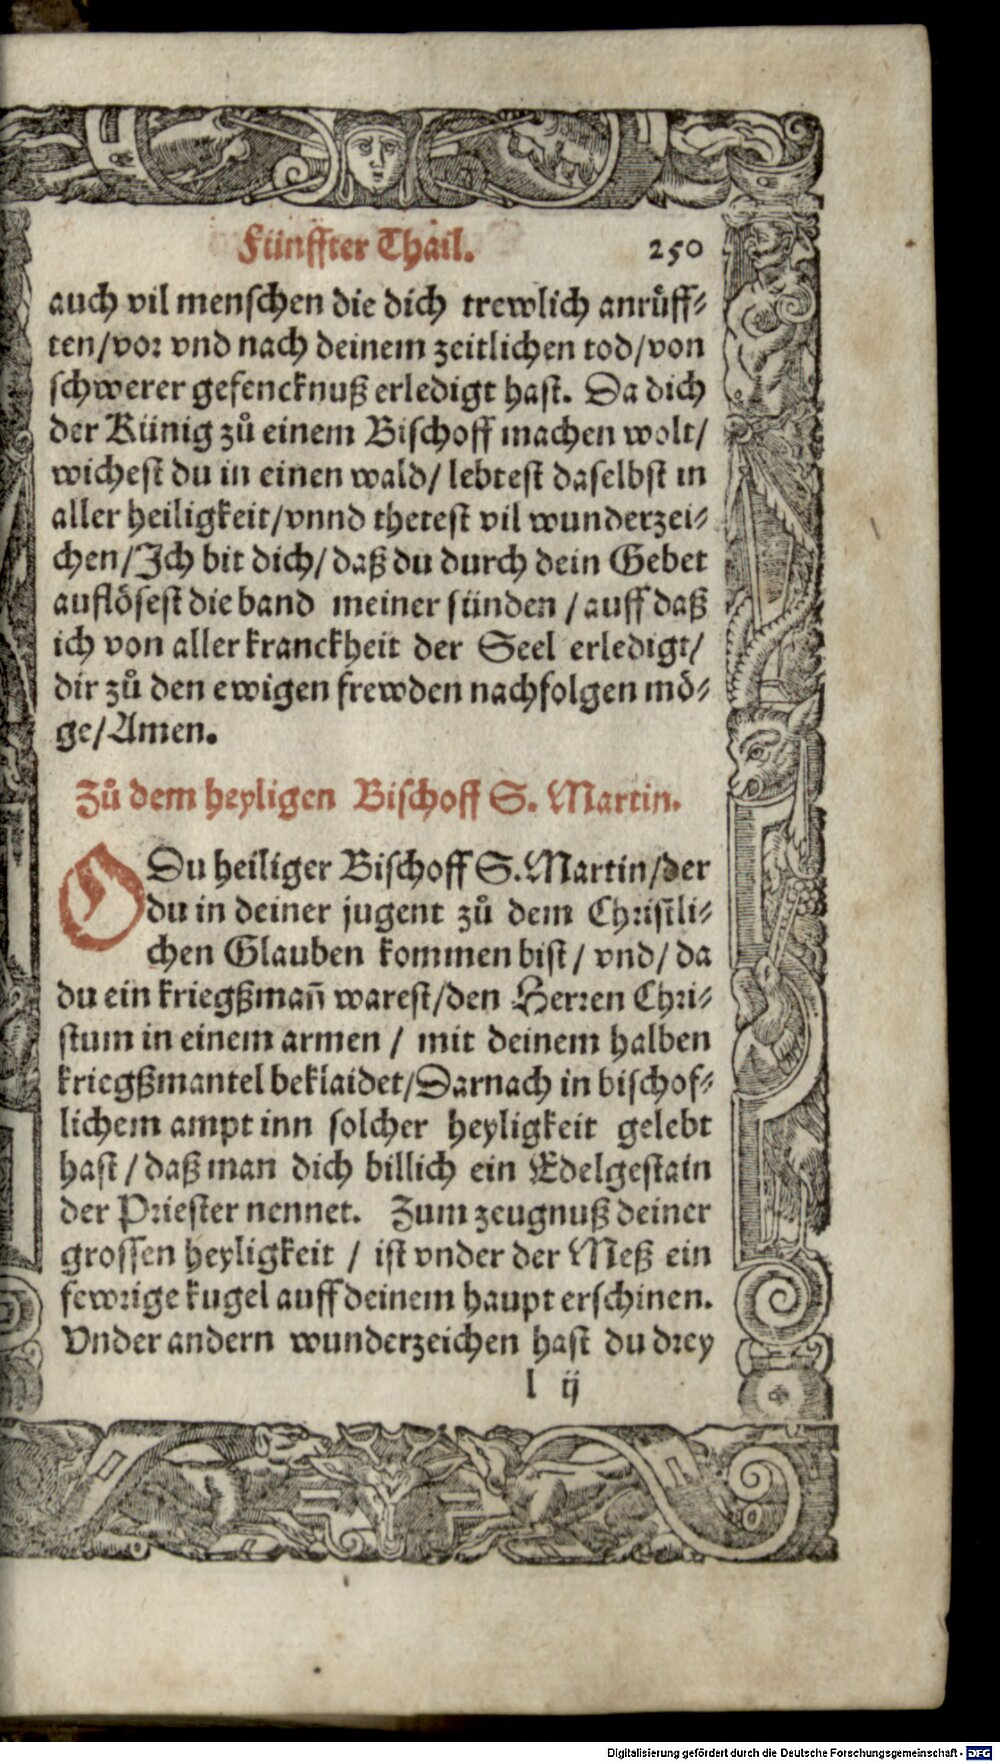 Fünffter Thail. 250
auch vil menschen die dich trewlich anrůff⸗
ten/vor vnd nach deinem zeitlichen tod/von
schwerer gefencknuß erledigt hast. Da dich
der Künig zů einem Bischoff machen wolt/
wichest du in einen wald/ lebtest daselbst in
aller heiligkeit/vnnd thetest vil wunderzei⸗
chen/Ich bit dich/ daß du durch dein Gebet
auflösest die band meiner sünden /auff daß
ich von aller kranckheit der Seel erledigt/
dir zů den ewigen frewden nachfolgen mö⸗
ge/Amen.
Zů dem heyligen Bischoff S. Martin.
O Du heiliger Bischoff S.Martin/der
du in deiner jugent zů dem Christli⸗
chen Glauben kommen bist/ vnd/ da
du ein kriegßmañ warest/den Herren Chri⸗
stum in einem armen / mit deinem halben
kriegßmantel beklaidet/Darnach in bischof⸗
lichem ampt inn solcher heyligkeit gelebt
hast/daß man dich billich ein Edelgestain
der Priester nennet. Zum zeugnuß deiner
grossen heyligkeit / ist vnder der Meß ein
fewrige kugel auff deinem haupt erschinen.
Vnder andern wunderzeichen hast du drey
l ij
Digitalisierung gefördert durch die Deutsche Forschungsgemeinschaft - DFG